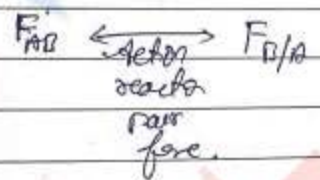 F_AB ⟷ F_B/A
Action
reaction
pair
force.